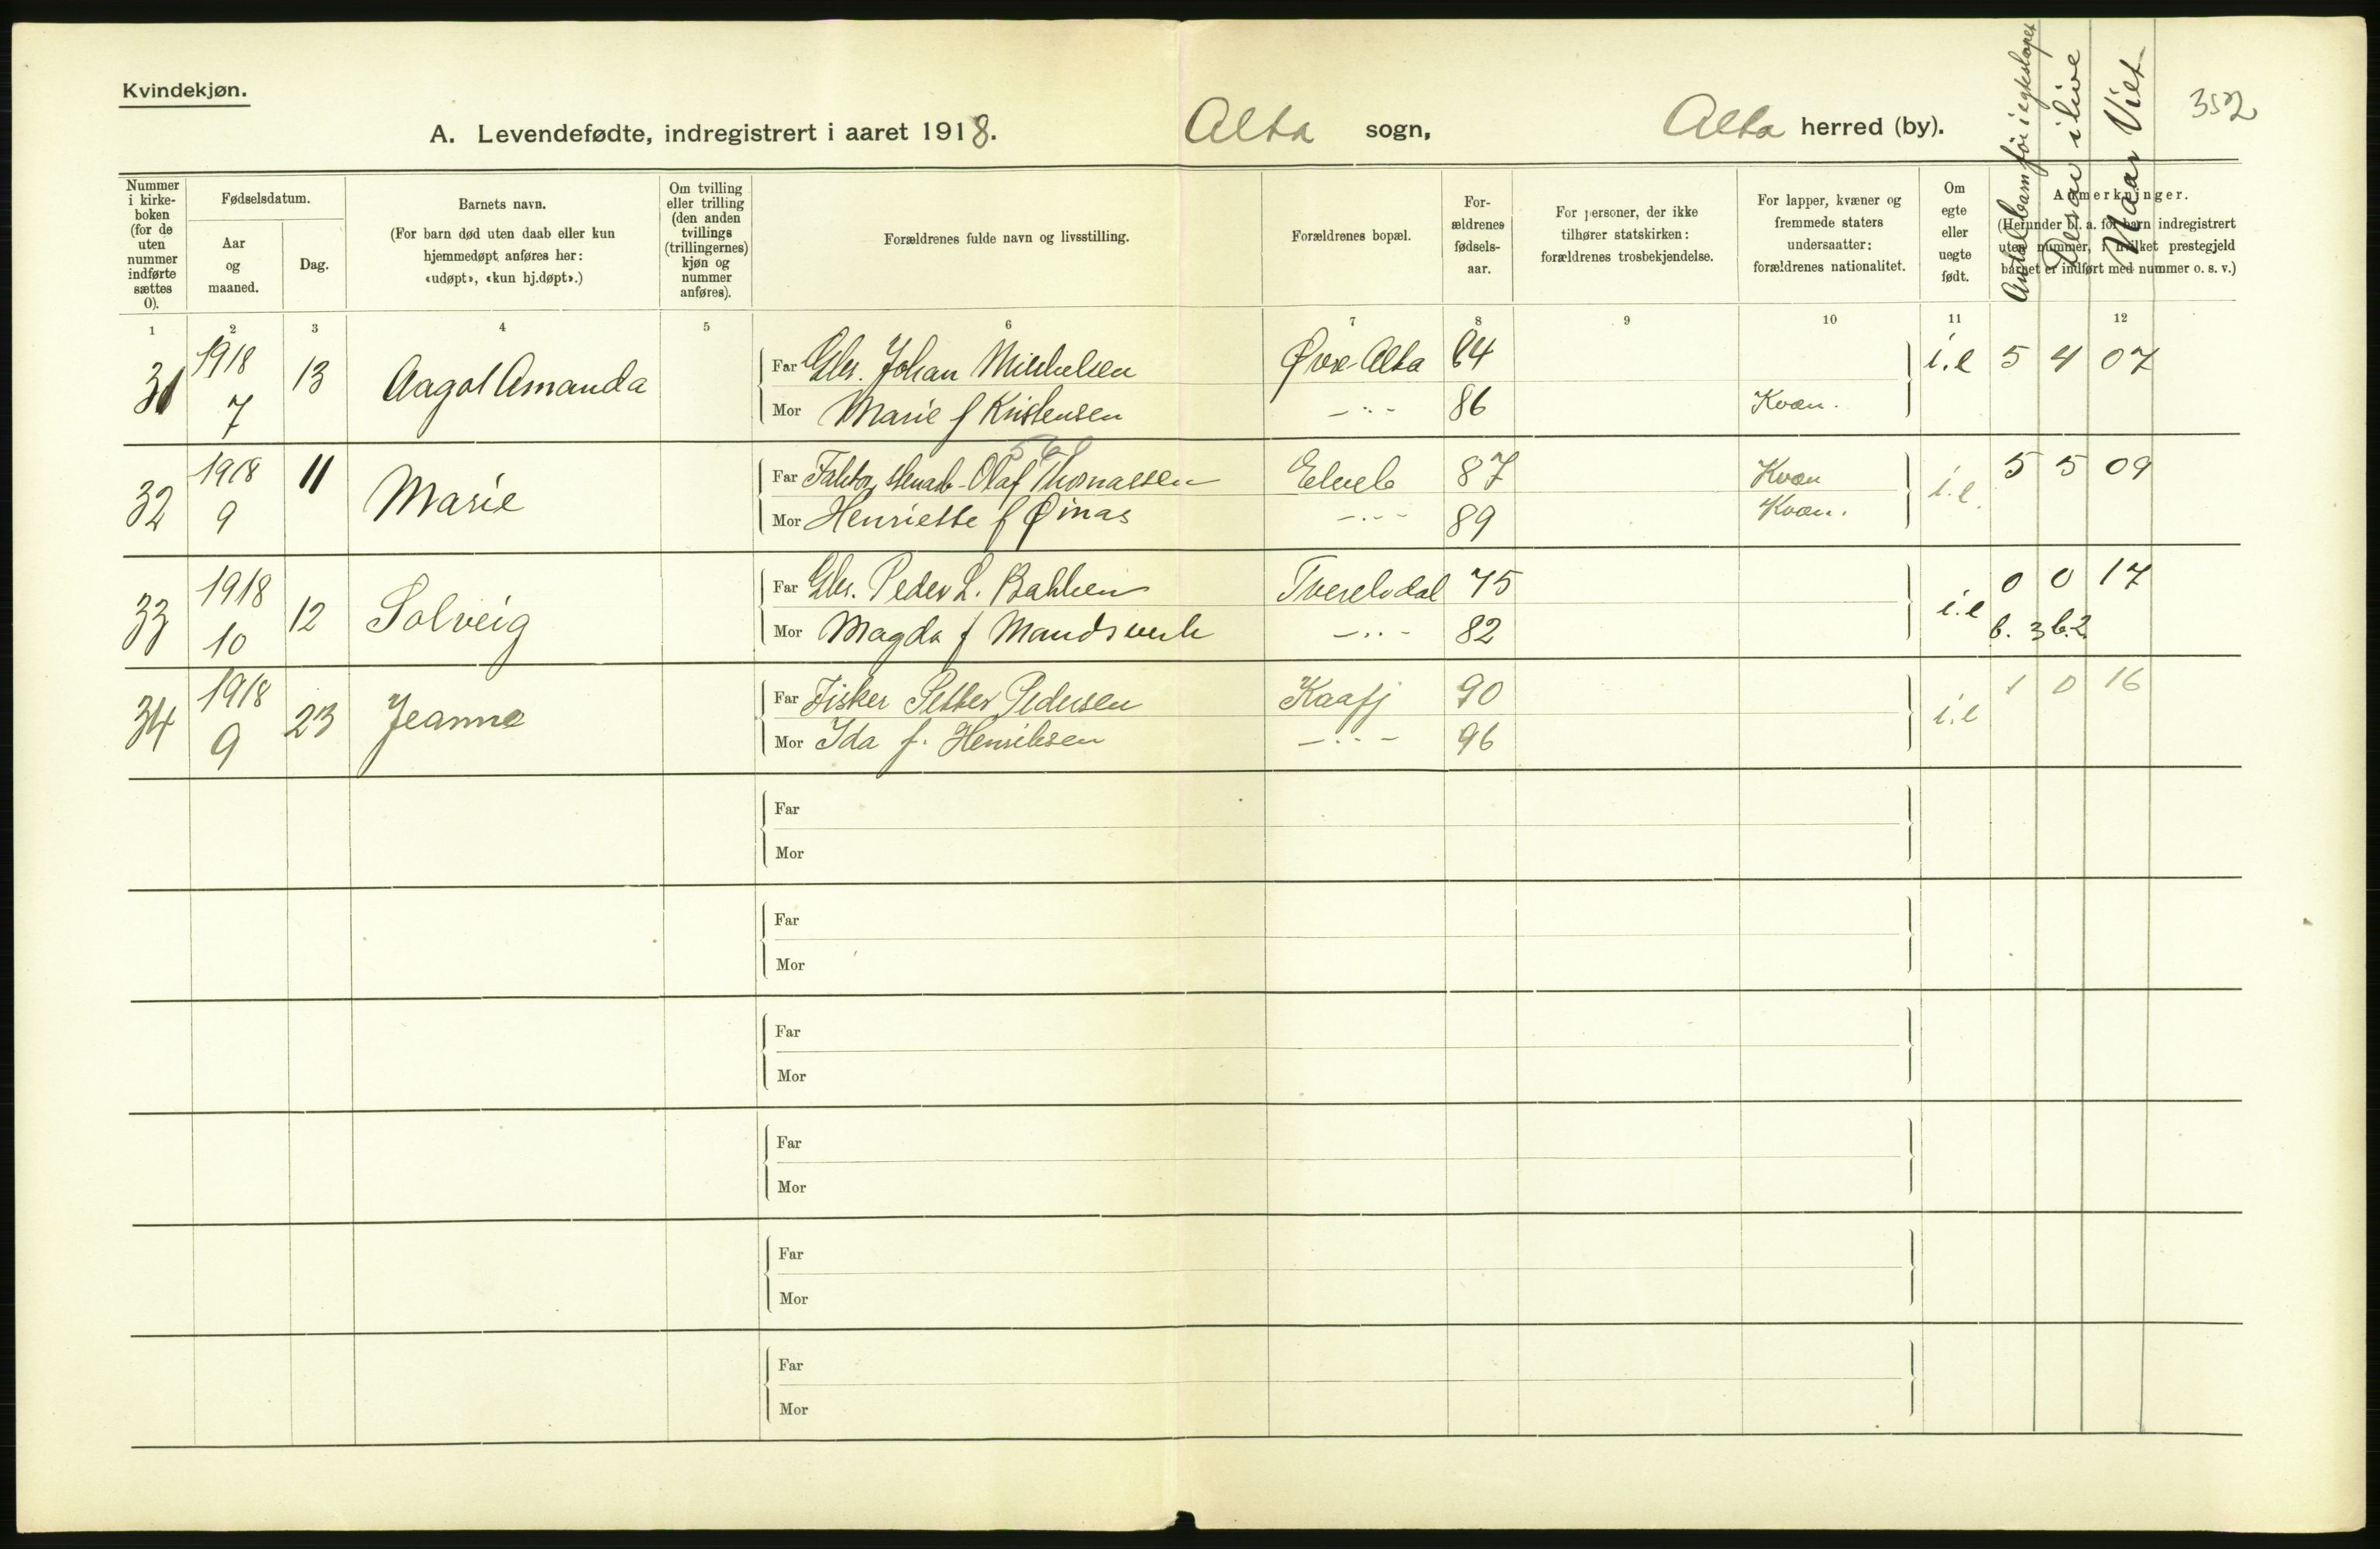 Kvindekjøn.
A. Levendefødte, indregistrert i aaret 1918. Alta sogn, Alta herred (by). 352
Nummer i kirke-boken (for de uten nummer indførte sættes 0).
Fødselsdatum.
Aar og maaned.
Dag.
Barnets navn.
(For barn død uten daab eller kun hjemmedøpt anføres her: «udøpt», «kun hj.døpt».)
Om tvilling eller trilling (den anden tvillings (trillingernes) kjøn og nummer anføres).
Forældrenes fulde navn og livsstilling.
Forældrenes bopæl.
For-ældrenes fødsels-aar.
For personer, der ikke tilhører statskirken: forældrenes trosbekjendelse.
For lapper, kvæner og fremmede staters undersaatter: forældrenes nationalitet.
Om egte eller uegte født.
Anmerkninger.
(Herunder bl. a. for barn indregistrert uten nummer, i hvilket prestegjeld barnet er indført med nummer o. s. v.)
Antal barn før i egteskapet
Derav i live
Naar Viet
1 2 3 4 5 6 7 8 9 10 11 12
31 1918 7 13 Aagot Amanda
Far Gbr. Johan Mikkelsen Øvre Alta 64 i.e 5 4 07
Mor Marie f Kristensen —〃— 86 Kvæn.
32 1918 9 11 Marie
Far Olaf Thomassen Elveb 87 Kvæn i.e. 5 5 09
Mor Henriette f Øinas —〃— 89 Kvæn.
33 1918 10 12 Solveig
Far Gbr. Peder L. Bakken Tverelvdal 75 i.e 0 0 17
Mor Magda f Mandsverk —〃— 82 b. 3 b. 2
34 1918 9 23 Jeanne
Far Fisker Petter Pedersen Kaafj 90 i.e 1 0 16
Mor Ida f. Henriksen —〃— 96
Far
Mor
Far
Mor
Far
Mor
Far
Mor
Far
Mor
Far
Mor